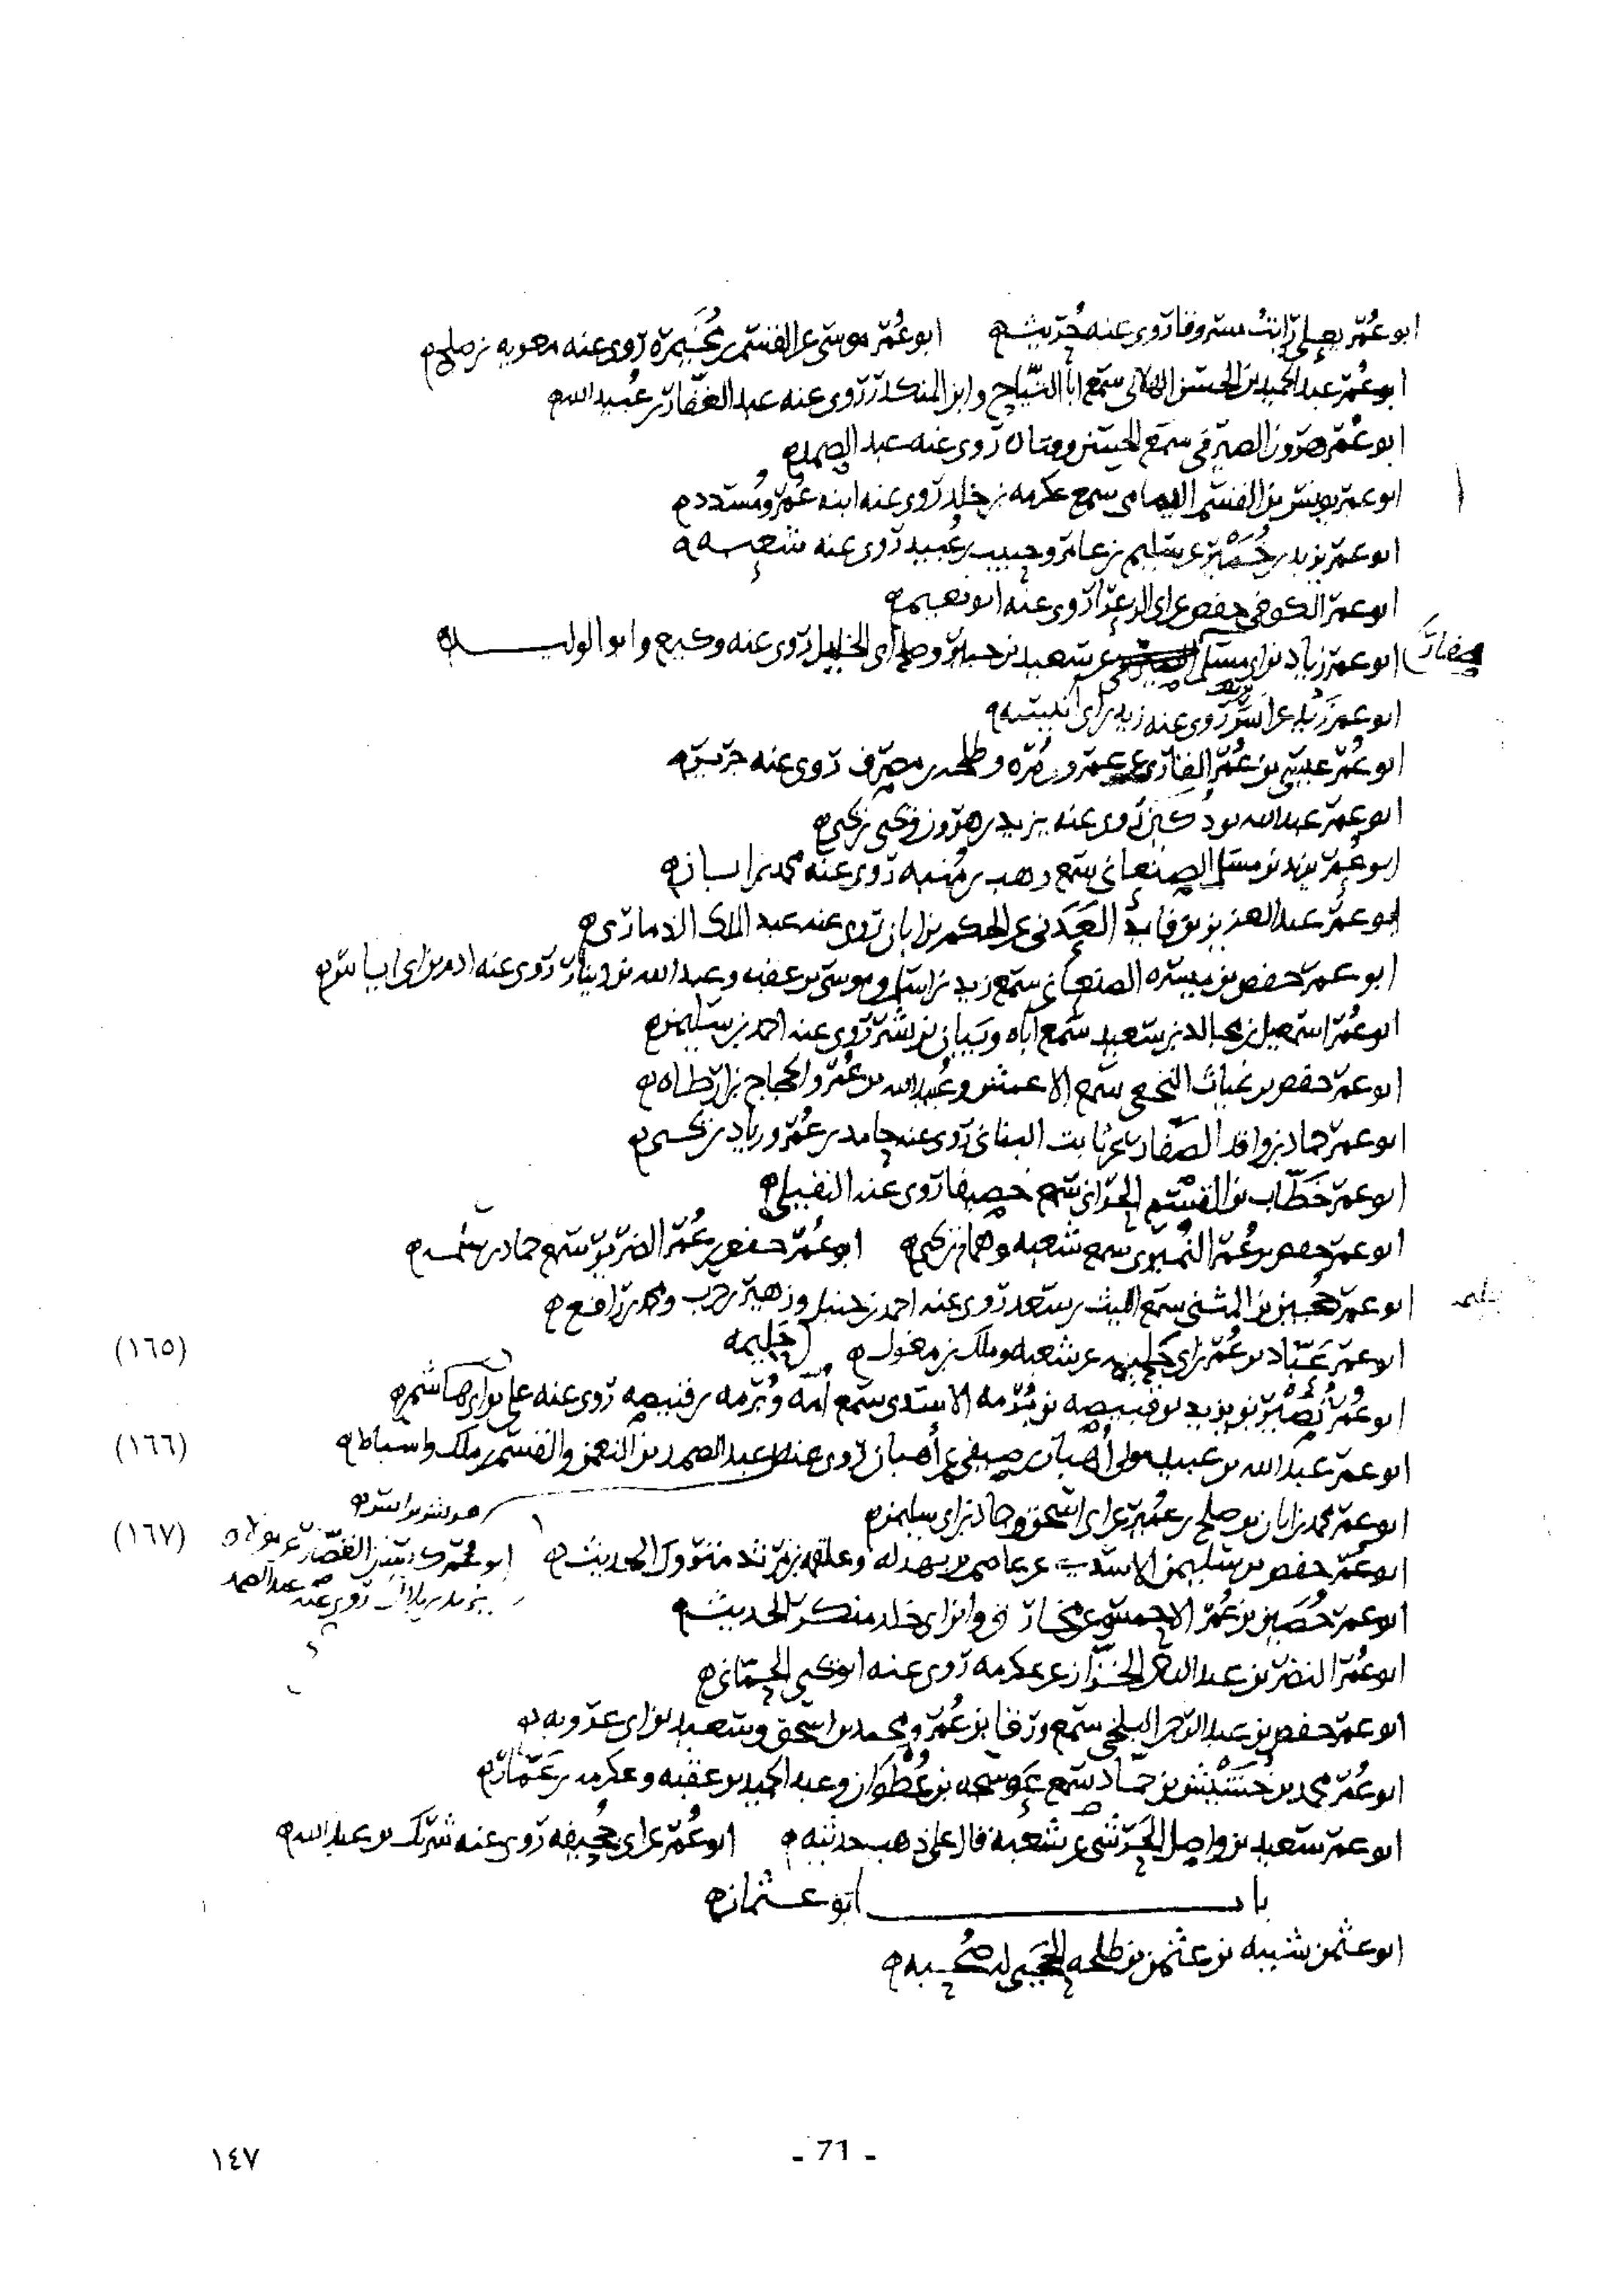 ابو عُمَر يعلى رايت مسروقا روى عنه حُريث ابو عُمَر موسى عن القسم بن مُخَيمِرة روى عنه معويه بن صلح
ابو عُمَر عبد الحميد بن الحسن الهلالى سمع ابا التَّيَّاح وابن المنكدر روى عنه عبد الغفار بن عُبيد الله
ابو عُمَر هرون الصيرفى سمع الحسن روى عنه عبد الصمد
ابو عمر يونس بن القسم اليمامى سمع عكرمه بن خلد روى عنه ابنه عُمَر ومُسَدد
ابو عمر يزيد بن خُمَيْر عن سليم بن عامر وحبيب بن عُبيد روى عنه شعبه
ابو عمر الكوفى حفص روى عنه ابو نعيم
ابو عمر زياد بن ابى مسلم عن سعيد بن جبير وصلح ابى الخليل روى عنه وكيع وابو الوليد
صفار
ابو عمر عن انس روى عنه زيد بن ابى انيسه
ابو عُمَر عيسى بن عُمَر القارى عن عمرو بن مُرّه وطلحه بن مصرف روى عنه جرير
ابو عمر عبد الله بن دكين روى عنه يزيد بن هرون ويحيى بن يحيى
ابو عُمَر يزيد بن مسلم الصنعانى سمع وهب بن مُنبه روى عنه محمد بن ابان
ابو عمر عبد العزيز بن فايد العَدَنى عن الحكم بن ابان روى عنه عبد الملك الذمارى
ابو عمر حفص بن ميسره الصنعانى سمع زيد بن اسلم وموسى بن عقبه وعبد الله بن دينار روى عنه ادم بن ابى اياس
ابو عُمَر اسمعيل بن مجالد بن سعيد سمع اباه وبيان بن بشر روى عنه احمد بن سليمن
ابو عمر حفص بن غياث النخعى سمع الاعمش وعُبيد الله بن عُمَر والحجاج بن ارطاه
ابو عمر حماد بن واقد الصفار عن ثابت البنانى روى عنه حامد بن عُمَر وزياد بن يحيى
ابو عمر خَطّاب بن القسم الحرانى سمع خصيفا روى عنه النفيلى
ابو عمر حفص بن عُمَر النُميرى سمع شعبه وهمام بن يحيى ابو عُمَر حفص بن عُمَر الضرير سمع حماد بن سلمه
ابو عمر حُجين بن المثنى سمع الليث بن سعد روى عنه احمد بن حنبل وزهير بن حرب ومحمد بن رافع
ابو عمر عَبّاد بن عُمَر بن ابى حليمه عن شعبه وملك بن مغول حليمه
(١٦٥)
ابو عُمَر نُصَيْر بن يزيد بن قبيصه بن بُرْمه الاسدى سمع امه وبُرمه بن قبيصه روى عنه على بن ابى هاشم
ابو عمر عبد الله بن عبيد مولى اُهبان بن صيفى عن اُهبان روى عنه عبد الصمد بن النعمن والقسم بن ملك واسباط
(١٦٦)
ابو عمر محمد بن ابان بن صلح بن عُمير عن ابى اسحق وحماد بن ابى سليمن
ابو عمر حفص بن سليمن الاسدى عن عاصم بن بهدله وعلقمه بن مرثد متروك الحديث
(١٦٧)
ابو عمر حُصَين بن عُمَر الاحمسى عن مخارق وابن ابى خلد منكر الحديث
ابو عُمَر النضر بن عبد الرحمن الخزاز عن عكرمه روى عنه ابو يحيى الحِمّانى
ابو عمر حفص بن عبد الرحمن البلخى سمع ورقا بن عُمَر ومحمد بن اسحق وسعيد بن ابى عروبه
ابو عمر سعيد بن واصل الحَرَشى عن شعبة قال على ذهب حديثه ابو عُمَر عن ابى جُحيفه روى عنه شريك بن عبد الله
باب ابو عثمان
ابو عثمن شيبه بن عثمن بن طلحه الحَجَبى له صُحبه
- 71 -
١٤٧